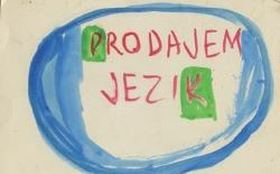 PRODAJEM
JEZIK